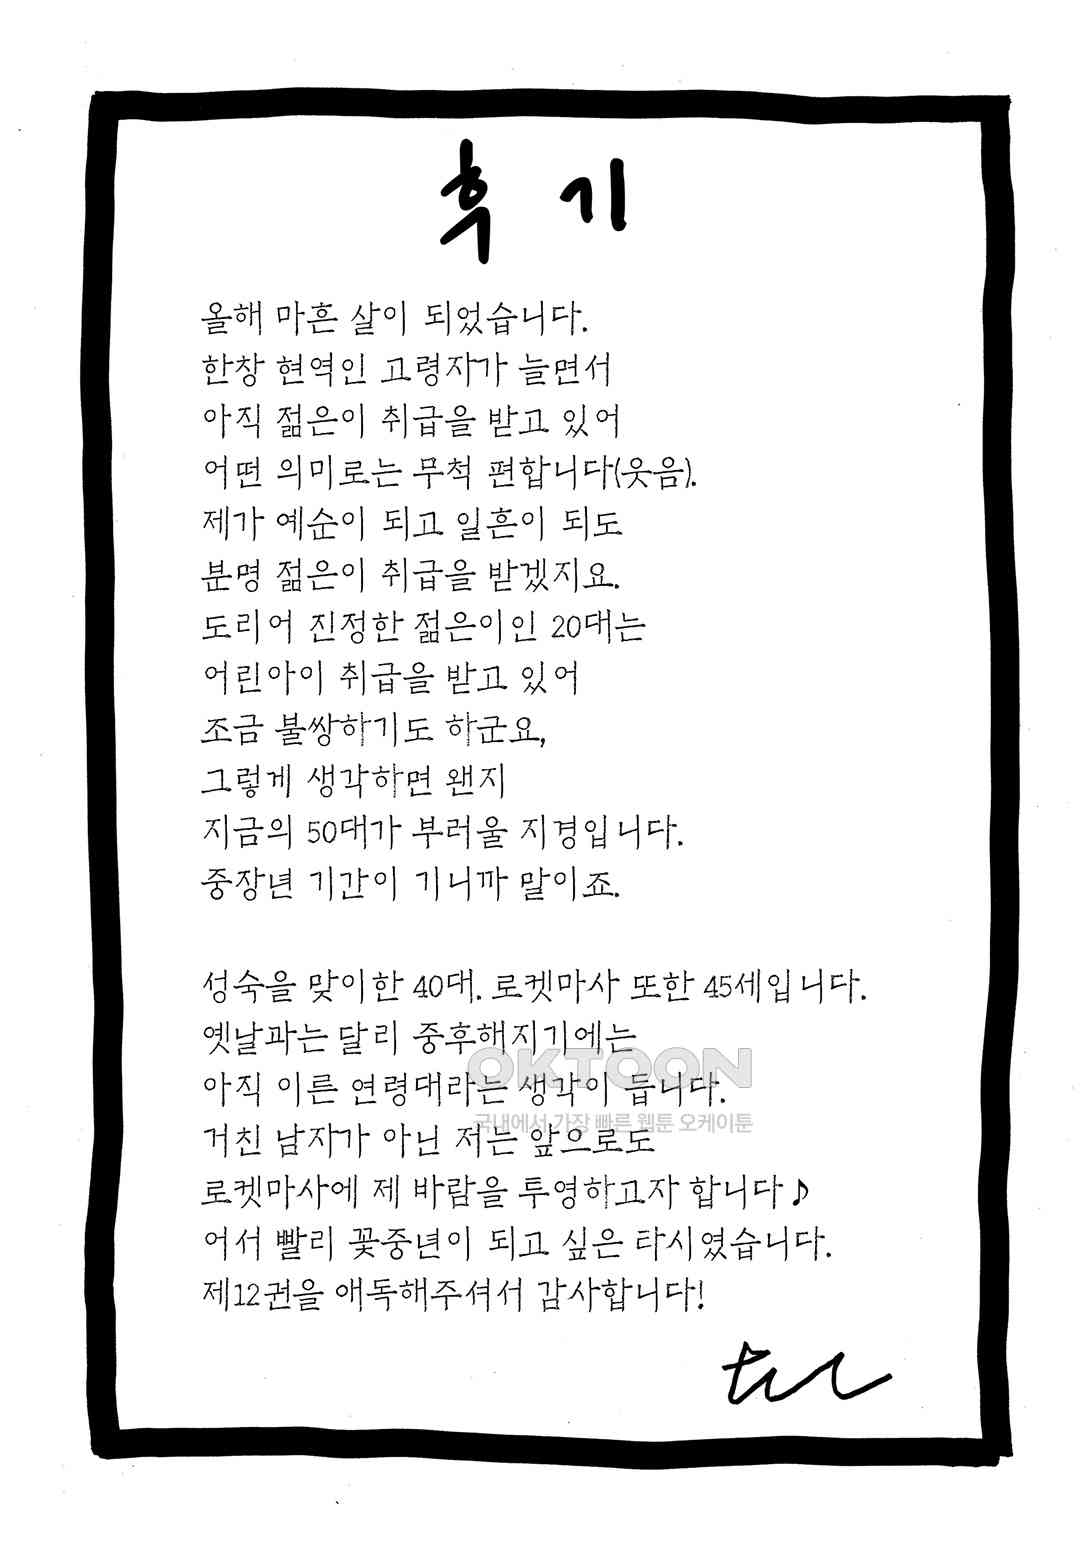 후기
올해 마흔 살이 되었습니다.
한창 현역인 고령자가 늘면서
아직 젊은이 취급을 받고 있어
어떤 의미로는 무척 편합니다(웃음).
제가 예순이 되고 일흔이 되도
분명 젊은이 취급을 받겠지요.
도리어 진정한 젊은이인 20대는
어린아이 취급을 받고 있어
조금 불쌍하기도 하군요,
그렇게 생각하면 왠지
지금의 50대가 부러울 지경입니다.
중장년 기간이 기니까 말이죠.
성숙을 맞이한 40대. 로켓마사 또한 45세입니다.
옛날과는 달리 중후해지기에는
OKTOON
아직 이른 연령대라는 생각이 듭니다.
국내에서 가장 빠른 웹툰 오케이툰
거친 남자가 아닌 저는 앞으로도
로켓마사에 제 바람을 투영하고자 합니다♪
어서 빨리 꽃중년이 되고 싶은 타시였습니다.
제12권을 애독해주셔서 감사합니다!